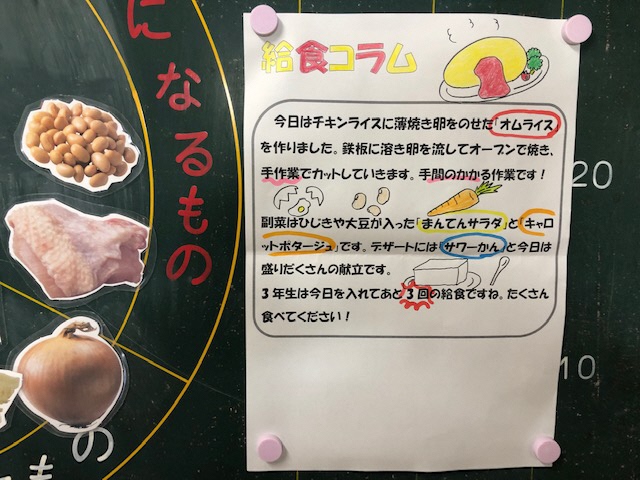 になるもの
給食コラム
今日はチキンライスに薄焼き卵をのせた「オムライス」
を作りました。鉄板に溶き卵を流してオーブンで焼き、
手作業でカットしていきます。手間のかかる作業です！
副菜はひじきや大豆が入った「まんてんサラダ」と「キャロ
ットポタージュ」です。デザートには「サワーかん」と今日は
盛りだくさんの献立です。
3年生は今日を入れてあと3回の給食ですね。たくさん
食べてください！
20
10
の
も